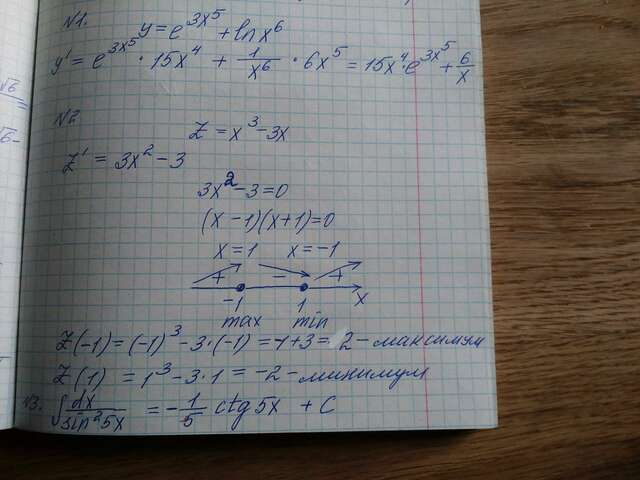 №1. y = e^{3x^5} + ln x^6
y' = e^{3x^5} · 15x^4 + 1/x^6 · 6x^5 = 15x^4 · e^{3x^5} + 6/x
№2
Z = x^3 - 3x
Z' = 3x^2 - 3
3x^2 - 3 = 0
(x - 1)(x + 1) = 0
x = 1 x = -1
+ - +
-1 1 x
max min
Z(-1) = (-1)^3 - 3·(-1) = -1 + 3 = 2 - максимум
Z(1) = 1^3 - 3·1 = -2 - минимум
№3. ∫ dx/sin^2 5x = - 1/5 ctg 5x + C